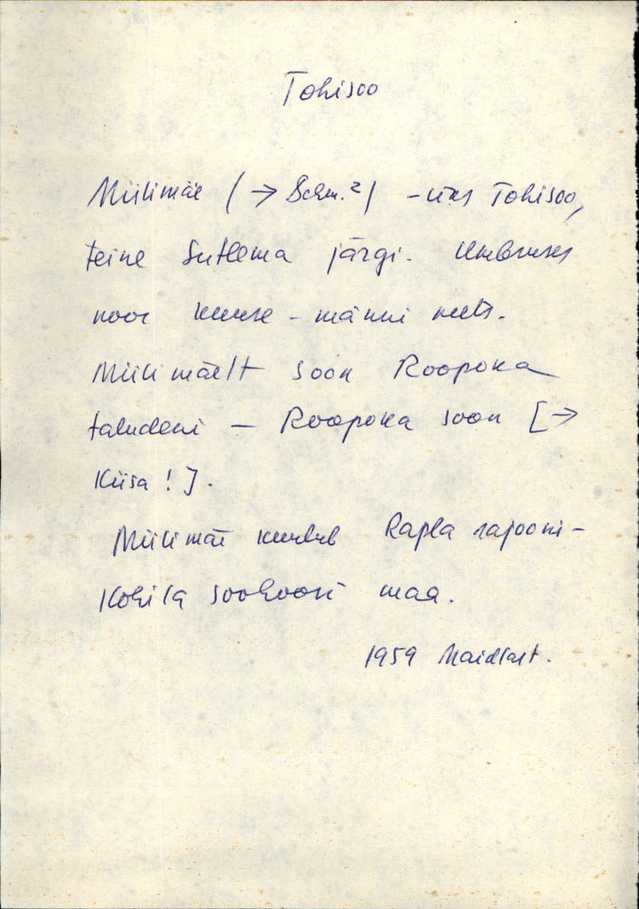 Tohisoo
Miilimäe (→ Schm.²) - üks Tohisoo,
teine Sutlema järgi. Umbruses
noor kuuse - männi mets.
Miilimäelt soon Roopoka
taludeni — Roopoka soon [→
Kiisa!].
Miilimäe kuulub Rapla rajooni -
Kohila sovhoosi maa.
1959 Maidlast.